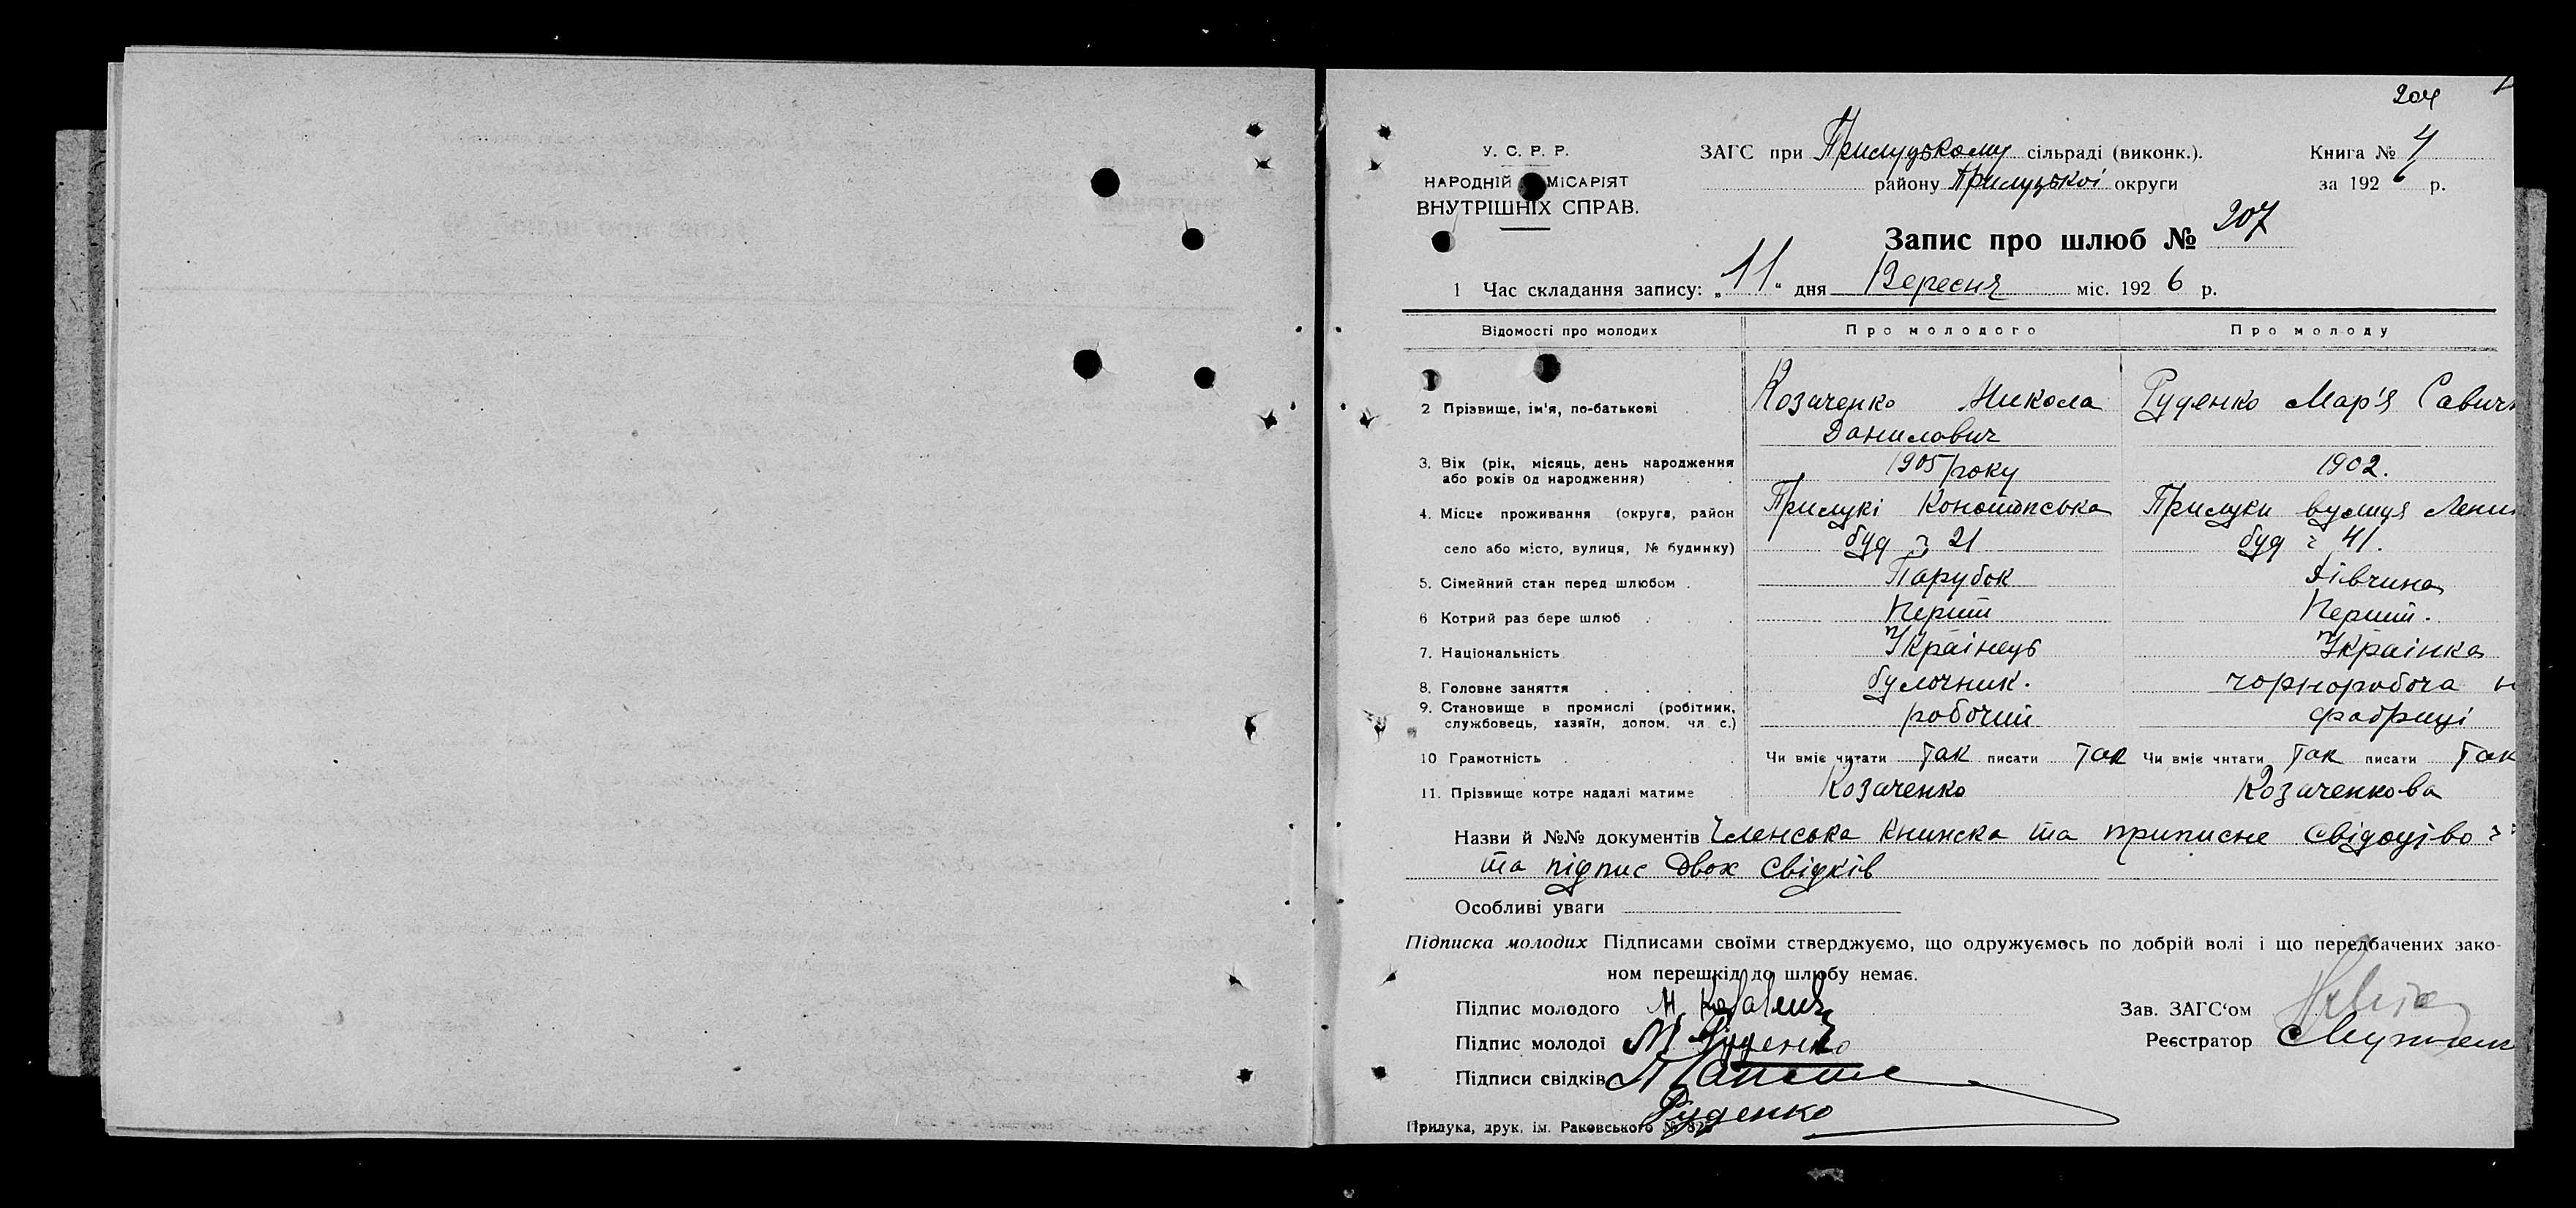 204
У. С. Р. Р.
НАРОДНІЙ МІСАРІЯТ
ВНУТРІШНІХ СПРАВ.
ЗАГС при Прилуцькому сільраді (виконк.).
району Прилуцькоі округи
Книга № 4
за 1926 р.
Запис про шлюб № 207
1 Час складання запису: „11“ дня Вересня міс. 1926 р.
Відомості про молодих
Про молодого
Про молоду
2 Прізвище, ім'я, по-батькові
Козаченко Микола
Данилович
Руденко Мар'я Савич
3. Вік (рік, місяць, день народження
або років од народження)
1905 року
1902.
4. Місце проживання (округа, район
село або місто, вулиця, № будинку)
Прилукі Конотопська
буд ч 21
Прилуки вулиця Лени
буд ч 41.
5. Сімейний стан перед шлюбом .
Парубок
Дівчина
6 Котрий раз бере шлюб
Перший
Перший.
7. Національність
Українець
Українка
8. Головне заняття
булочник.
чорноробоча н
9. Становище в промислі (робітник,
службовець, хазяїн, допом. чл с.)
робочий
фабриці
10 Грамотність
Чи вміє читати так писати так
Чи вміє читати так писати так
11. Прізвище котре надалі матиме
Козаченко
Козаченкова
Назви й №№ документів Членська книжка та приписне свідоцтво
та підпис двох свідків
Особливі уваги
Підписка молодих Підписами своїми стверджуємо, що одружуємось по добрій волі і що передбачених зако-
ном перешкід до шлюбу немає.
Підпис молодого М.
Підпис молодої М Руденко
Підписи свідків
Руденко
Зав. ЗАГС'ом
Реєстратор
Прилука, друк. ім. Раковського №